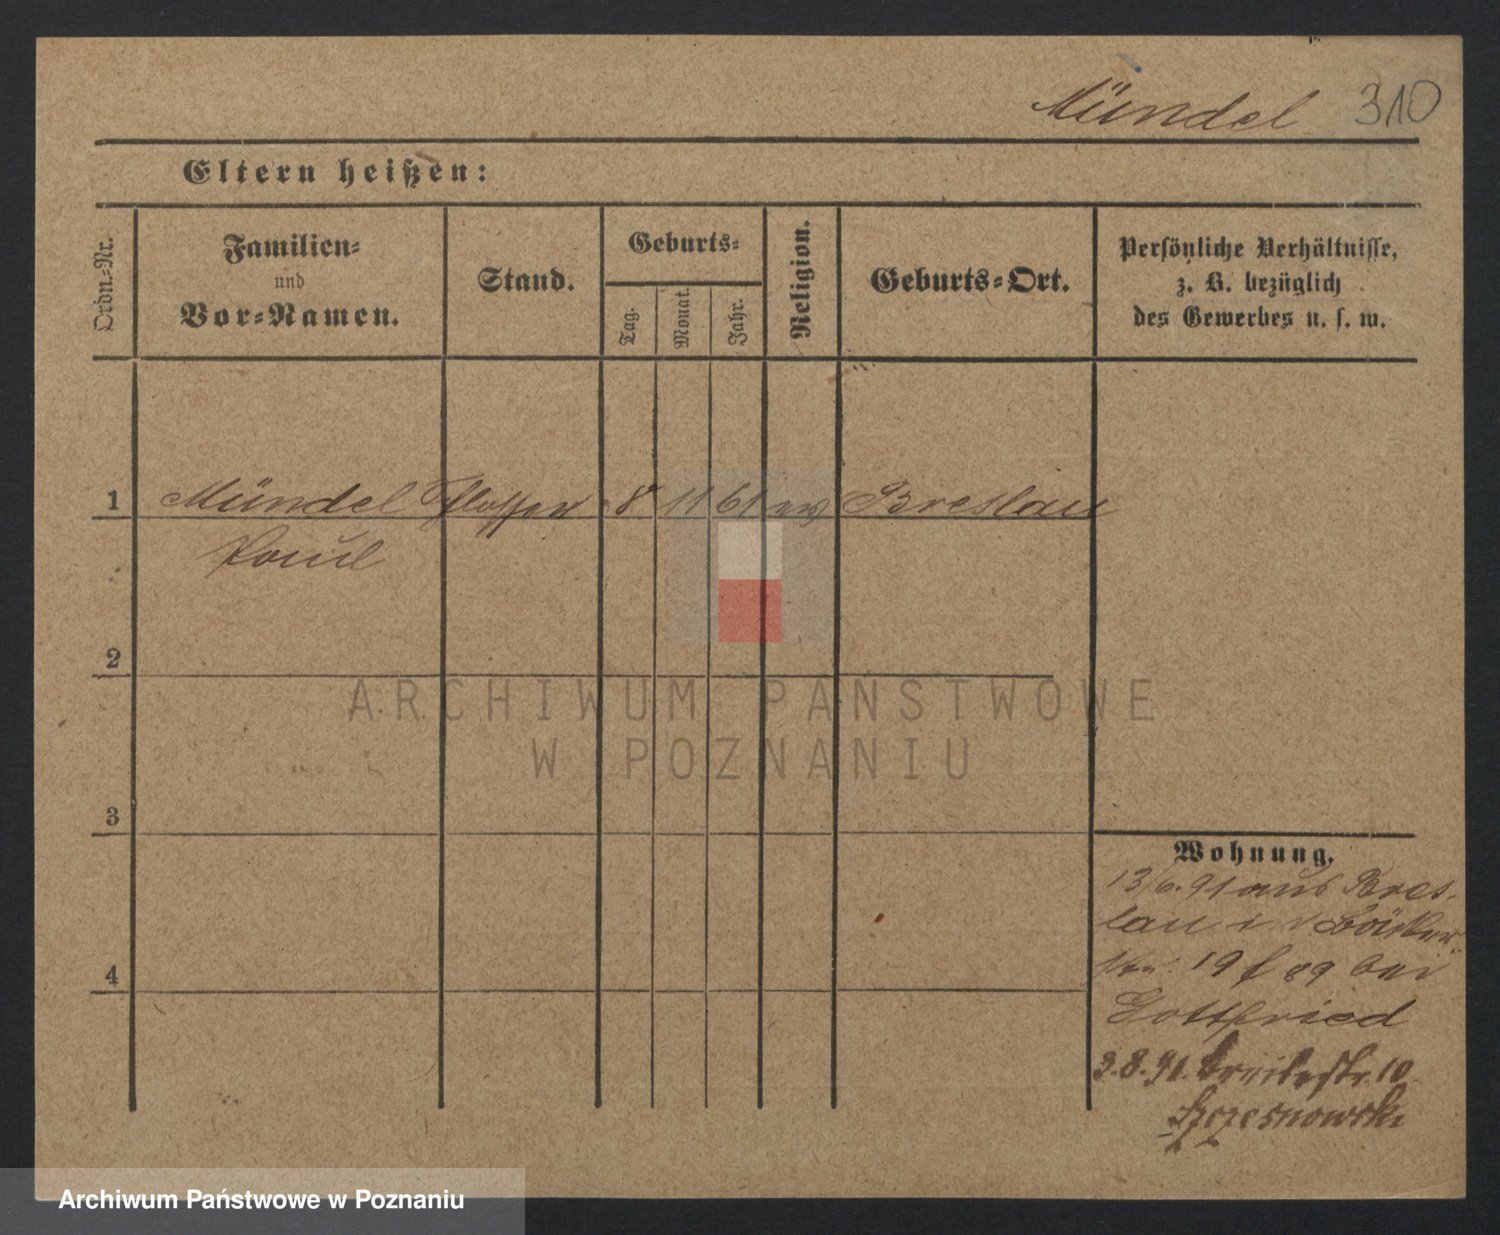 Mündel 310
Eltern heißen:
Ordn.-Nr.
Familien-
und
Vor-Namen.
Stand.
Geburts-
Tag.
Monat.
Jahr.
Religion.
Geburts-Ort.
Persönliche Verhältnisse,
z. B. bezüglich
des Gewerbes u. s. w.
1 Mündel 8 11 61 ev Breslau
Paul
2
3
4
Wohnung.
13/6. 91 aus Bres-
lau
19 89 bei
Gottfried
3.8.91. Breitestr. 10
Szczesnowski
ARCHIWUM PAŃSTWOWE
W POZNANIU
Archiwum Państwowe w Poznaniu